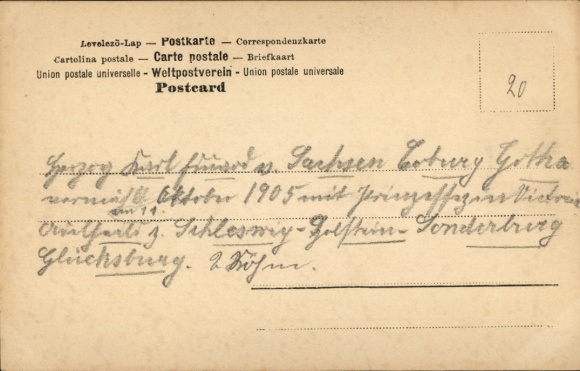 Levelező-Lap — Postkarte — Correspondenzkarte
Cartolina postale — Carte postale — Briefkaart
Union postale universelle - Weltpostverein - Union postale universale
Postcard
20
Herzog Karl Eduard v. Sachsen Coburg Gotha
vermählt Oktober 1905 mit Prinzessin Victoria
am 11.
Adelheid z. Schleswig-Holstein-Sonderburg
Glücksburg.